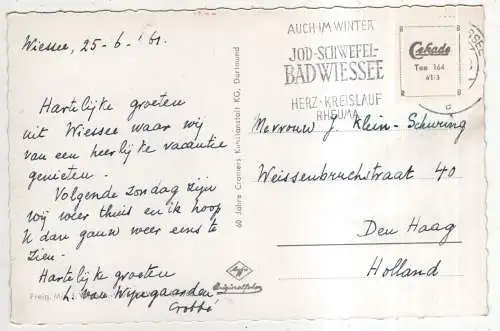 Wiessee, 25-6-'61.
Hartelijke groeten
uit Wiessee waar wij
van een heerlijke vacantie
genieten.
Volgende zondag zijn
wij weer thuis en ik hoop
U dan gauw weer eens te
zien.
Hartelijke groeten
L. van Wijngaarden
Crobbé
60 Jahre Cramers Kunstanstalt KG, Dortmund
Agfa
Originalfoto
AUCH IM WINTER
JOD-SCHWEFEL-
BAD WIESSEE
HERZ · KREISLAUF
RHEUMA
Cekade
Tee 164
61/3
Mevrouw J. Klein-Schuring
Weissenbruchstraat 40
Den Haag
Holland